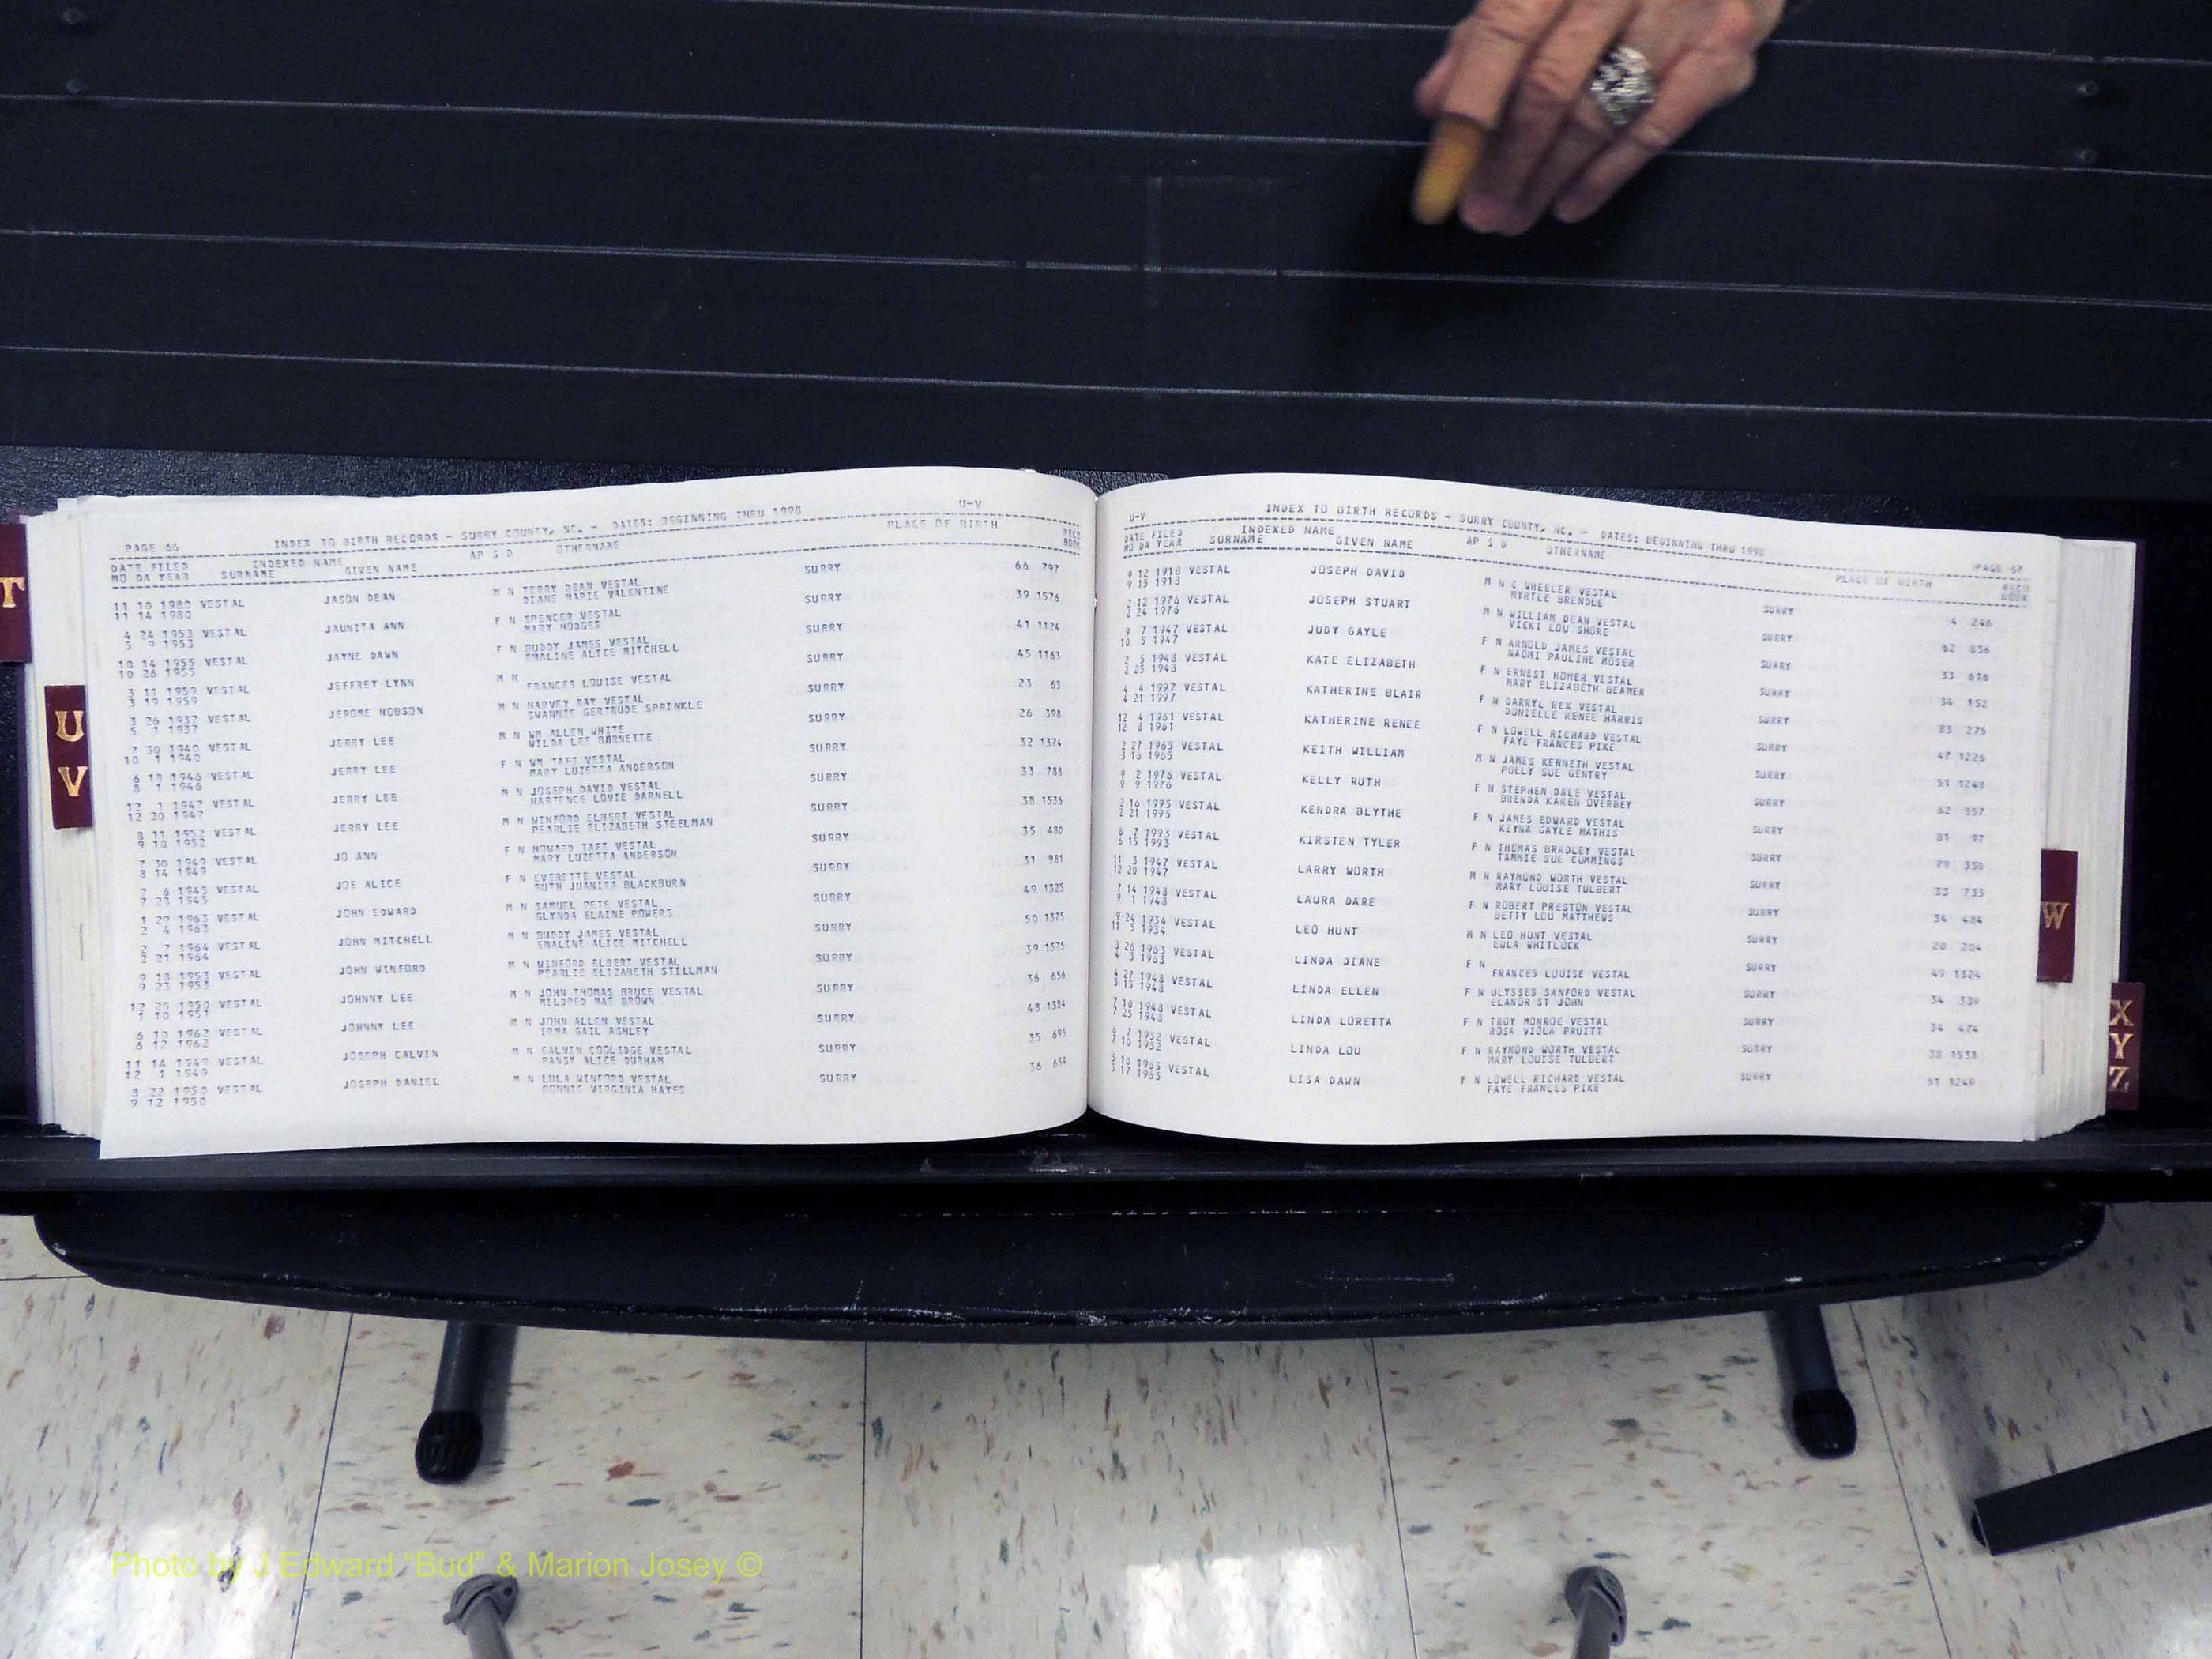 T
U
V
PAGE 66 INDEX TO BIRTH RECORDS - SURRY COUNTY, NC. - DATES: BEGINNING THRU 1998 U-V
DATE FILED INDEXED NAME AP S D OTHERNAME PLACE OF BIRTH RECD
MO DA YEAR SURNAME GIVEN NAME BOOK
11 10 1980 VESTAL JASON DEAN M N TERRY DEAN VESTAL SURRY 66 797
11 14 1980 DIANE MARIE VALENTINE
4 24 1953 VESTAL JAUNITA ANN F N SPENCER VESTAL SURRY 39 1576
5 9 1953 MARY HODGES
10 14 1955 VESTAL JAYNE DAWN F N BUDDY JAMES VESTAL SURRY 41 1124
10 26 1955 EMALINE ALICE MITCHELL
3 11 1959 VESTAL JEFFREY LYNN M N SURRY 45 1163
3 19 1959 FRANCES LOUISE VESTAL
3 26 1937 VESTAL JEROME HOBSON M N HARVEY RAY VESTAL SURRY 23 63
5 1 1937 SWANNIE GERTRUDE SPRINKLE
7 30 1940 VESTAL JERRY LEE M N WM ALLEN WHITE SURRY 26 398
10 1 1940 WILDA LEE BURNETTE
6 18 1946 VESTAL JERRY LEE F N WM TAFT VESTAL SURRY 32 1374
8 1 1946 MARY LUZETTA ANDERSON
12 1 1947 VESTAL JERRY LEE M N JOSEPH DAVID VESTAL SURRY 33 788
12 20 1947 HARTENCE LOVIE DARNELL
8 11 1952 VESTAL JERRY LEE M N WINFORD ELBERT VESTAL SURRY 38 1536
9 10 1952 PEARLIE ELIZABETH STEELMAN
7 30 1949 VESTAL JO ANN F N HOWARD TAFT VESTAL SURRY 35 480
8 14 1949 MARY LUZETTA ANDERSON
7 6 1945 VESTAL JOE ALICE F N EVERETTE VESTAL SURRY 31 981
7 23 1945 RUTH JUANITA BLACKBURN
1 29 1963 VESTAL JOHN EDWARD M N SAMUEL PETE VESTAL SURRY 49 1325
2 4 1963 GLYNDA ELAINE POWERS
2 7 1964 VESTAL JOHN MITCHELL M N BUDDY JAMES VESTAL SURRY 50 1375
2 21 1964 EMALINE ALICE MITCHELL
9 18 1953 VESTAL JOHN WINFORD M N WINFORD ELBERT VESTAL SURRY 39 1575
9 23 1953 PEARLIE ELIZABETH STILLMAN
12 25 1950 VESTAL JOHNNY LEE M N JOHN THOMAS BRUCE VESTAL SURRY 36 656
1 10 1951 MILDRED MAE BROWN
6 10 1962 VESTAL JOHNNY LEE M N JOHN ALLEN VESTAL SURRY 48 1384
6 12 1962 IRMA GAIL ASHLEY
11 14 1949 VESTAL JOSEPH CALVIN M N CALVIN COOLIDGE VESTAL SURRY 35 695
12 1 1949 PANSY ALICE DURHAM
8 22 1950 VESTAL JOSEPH DANIEL M N LULA WINFORD VESTAL SURRY 36 654
9 12 1950 BONNIE VIRGINIA HAYES
U-V INDEX TO BIRTH RECORDS - SURRY COUNTY, NC. - DATES: BEGINNING THRU 1998 PAGE 67
DATE FILED INDEXED NAME AP S D OTHERNAME PLACE OF BIRTH RECD
MO DA YEAR SURNAME GIVEN NAME BOOK
9 12 1918 VESTAL JOSEPH DAVID M N C WHEELER VESTAL SURRY 4 246
9 15 1918 MYRTLE BRENDLE
2 12 1976 VESTAL JOSEPH STUART M N WILLIAM DEAN VESTAL SURRY 62 856
2 24 1976 VICKI LOU SHORE
9 7 1947 VESTAL JUDY GAYLE F N ARNOLD JAMES VESTAL SURRY 33 616
10 5 1947 NAOMI PAULINE MOSER
2 5 1948 VESTAL KATE ELIZABETH F N ERNEST HOMER VESTAL SURRY 34 152
2 25 1948 MARY ELIZABETH BEAMER
4 4 1997 VESTAL KATHERINE BLAIR F N DARRYL REX VESTAL SURRY 83 275
4 21 1997 DONIELLE RENEE HARRIS
12 4 1961 VESTAL KATHERINE RENEE F N LOWELL RICHARD VESTAL SURRY 47 1226
12 8 1961 FAYE FRANCES PIKE
2 27 1965 VESTAL KEITH WILLIAM M N JAMES KENNETH VESTAL SURRY 51 1248
3 16 1965 POLLY SUE GENTRY
9 2 1976 VESTAL KELLY RUTH F N STEPHEN DALE VESTAL SURRY 62 357
9 9 1976 BRENDA KAREN OVERBEY
2 16 1995 VESTAL KENDRA BLYTHE F N JAMES EDWARD VESTAL SURRY 81 97
2 21 1995 KEYNA GAYLE MATHIS
6 7 1993 VESTAL KIRSTEN TYLER F N THOMAS BRADLEY VESTAL SURRY 79 350
6 15 1993 TAMMIE SUE CUMMINGS
11 3 1947 VESTAL LARRY WORTH M N RAYMOND WORTH VESTAL SURRY 33 733
12 20 1947 MARY LOUISE TULBERT
7 14 1948 VESTAL LAURA DARE F N ROBERT PRESTON VESTAL SURRY 34 484
9 1 1948 BETTY LOU MATTHEWS
9 24 1934 VESTAL LEO HUNT M N LEO HUNT VESTAL SURRY 20 204
11 5 1934 EULA WHITLOCK
3 26 1963 VESTAL LINDA DIANE F N SURRY 49 1324
4 3 1963 FRANCES LOUISE VESTAL
4 27 1948 VESTAL LINDA ELLEN F N ULYSSES SANFORD VESTAL SURRY 34 339
5 15 1948 ELANOR ST JOHN
7 10 1948 VESTAL LINDA LORETTA F N TROY MONROE VESTAL SURRY 34 474
7 25 1948 ROSA VIOLA PRUITT
6 7 1952 VESTAL LINDA LOU F N RAYMOND WORTH VESTAL SURRY 38 1533
7 10 1952 MARY LOUISE TULBERT
5 10 1965 VESTAL LISA DAWN F N LOWELL RICHARD VESTAL SURRY 51 1249
5 17 1965 FAYE FRANCES PIKE
W
X
Y
Z
Photo by J Edward “Bud” & Marion Josey ©